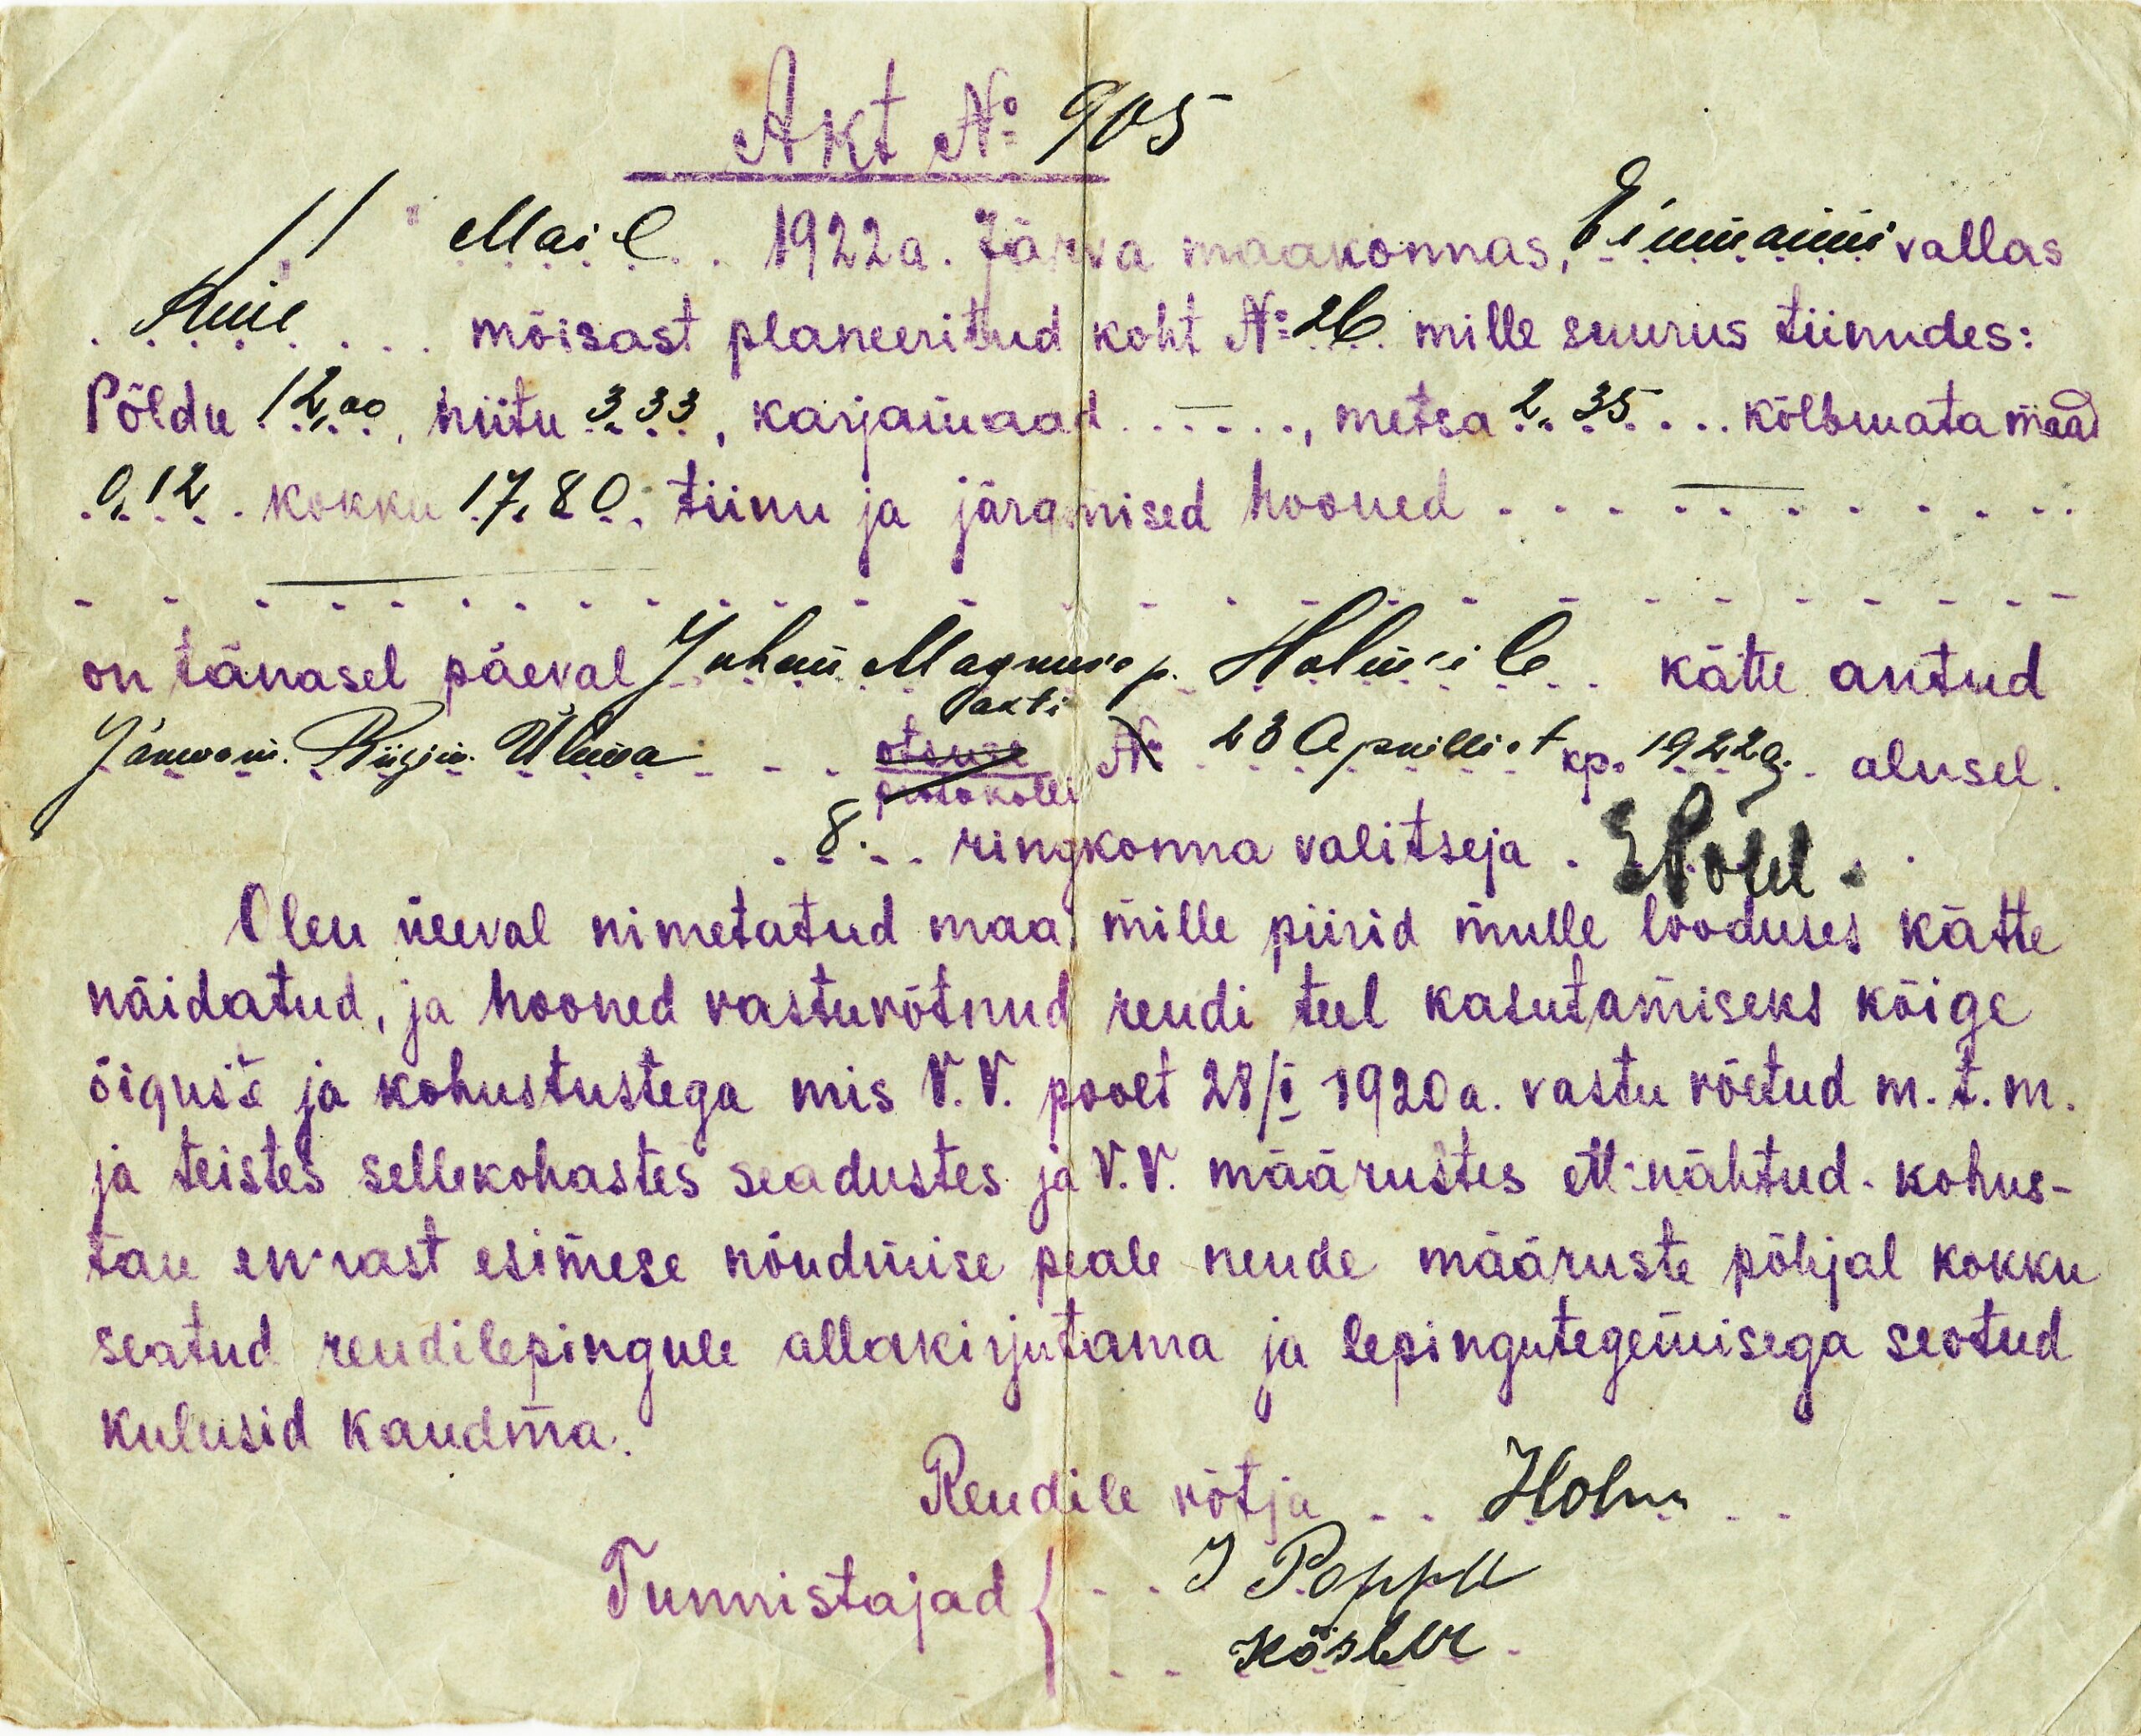 Akt № 905
11 Mail 1922 a. Järva maakonnas, Einmanni vallas
mõisast planeeritud koht № 26 mille suurus tiinudes:
Põldu 12,00, hiitu 3.33, karjamaad —, metsa 2.35 kõlbmata maad
0,12 kokku 17.80 tiinu ja järgmised hooned —
on tänasel päeval Juhan Magnuse p. Holmi'le kätte antud
akti
otsuse № 23 Aprillist kp. 1922 a. alusel.
protokolli
8. ringkonna valitseja
Olen üeeval nimetatud maa, mille piirid mulle looduses kätte
näidatud, ja hooned vastuvõtnud rendi teel kasutamiseks kõige
õiguste ja kohustustega mis V.V. poolt 28/I 1920 a. vastu võetud m.t.m.
ja teistes sellekohastes seadustes ja V.V. määrustes ett nähtud. kohus-
tan ennast esimese nõudmise peale nende määruste põhjal kokku
seatud rendilepingule allakirjutama ja lepingutegemisega seotud
kulusid kandma.
Rendile võtja Holm
Tunnistajad J Poppel
Köster